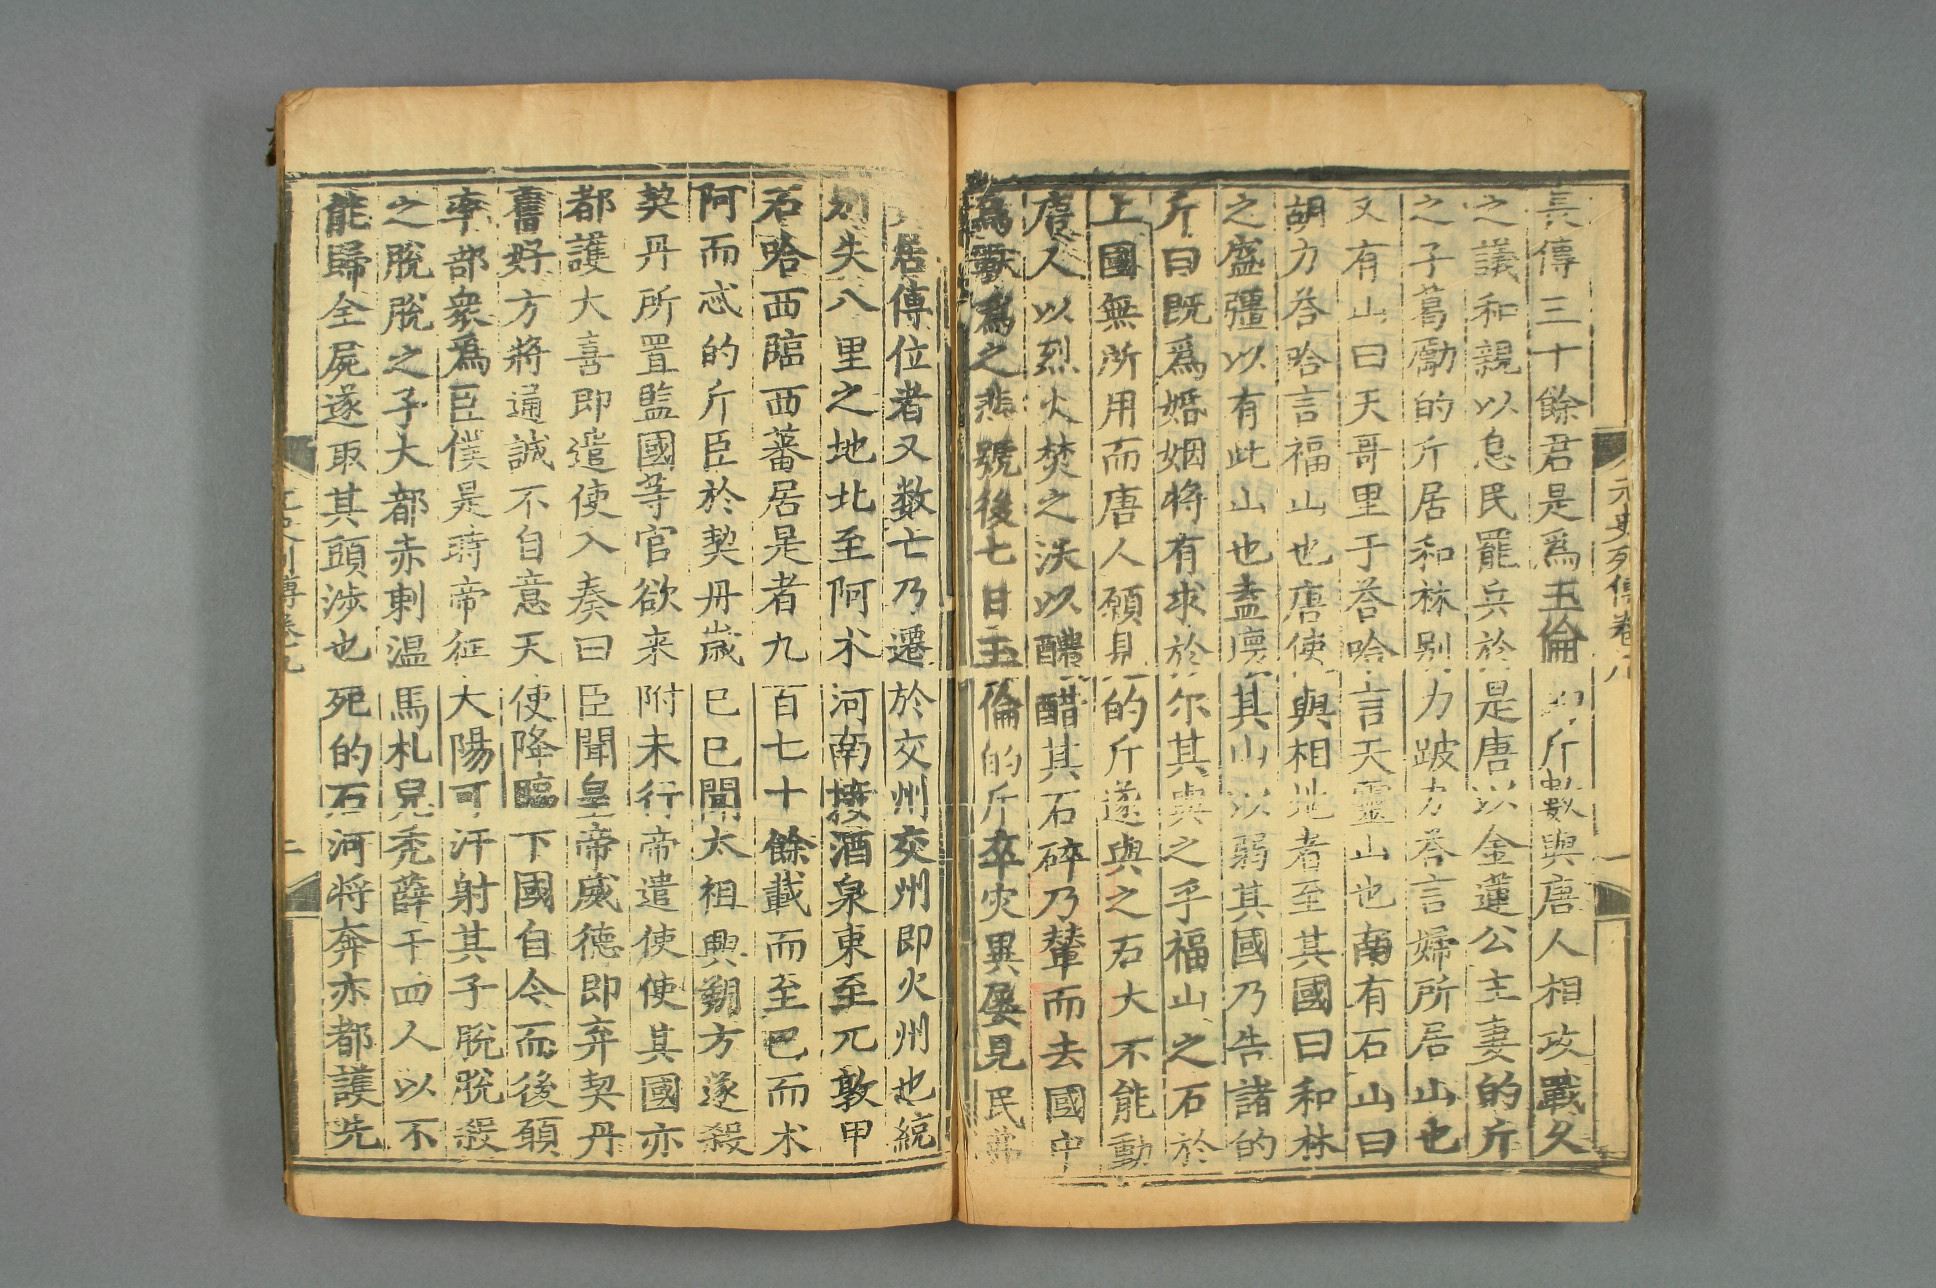 長傳三十餘君是爲玉倫的斤數與唐人相攻戰久
之議和親以息民罷兵於是唐以金蓮公主妻的斤
之子葛勵的斤居和林别力跛力荅言婦所居山也
又有山曰天哥里于荅哈言天靈山也南有石山曰
胡力荅哈言福山也唐使與相地者至其國曰和林
之盛彊以有此山也盍壞其山以弱其國乃告諸的
斤曰既爲婚姻将有求於尔其與之乎福山之石於
上國無所用而唐人願見的斤遂與之石大不能動
唐人以烈火焚之沃以醲醋其石碎乃輦而去國中
鳥獸爲之悲號後七日玉倫的斤卒灾異屡見民弗
居傳位者又数亡乃遷於交州交州即火州也統
别失八里之地北至阿朮河南接酒泉東至兀敦甲
石哈西臨西蕃居是者九百七十餘載而至巴而朮
阿而忒的斤臣於契丹歲已巳聞太祖興朔方遂殺
契丹所置監國等官欲来附未行帝遣使使其國亦
都護大喜即遣使入奏曰臣聞皇帝威德即弃契丹
舊好方將通誠不自意天使降臨下國自今而後願
率部衆爲臣僕是時帝征大陽可汗射其子脫脫殺
之脫脫之子大都赤剌温馬札兒秃薛干四人以不
能歸全屍遂取其頭涉也兒的石河将奔亦都護先
元史列傳卷八
一
元史列傳卷九
二